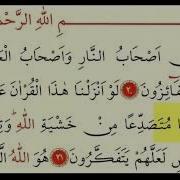 مِ اللَّهِ الرَّحْمَ
أَصْحَابُ النَّارِ وَأَصْحَابُ الْ
لْفَائِزُونَ ﴿٢٠﴾ لَوْ أَنْزَلْنَا هٰذَا الْقُرْاٰنَ عَ
مُتَصَدِّعًا مِنْ خَشْيَةِ اللّٰهِ وَتِ
لَعَلَّهُمْ يَتَفَكَّرُونَ ﴿٢١﴾ هُوَ اللّٰهُ الَّ